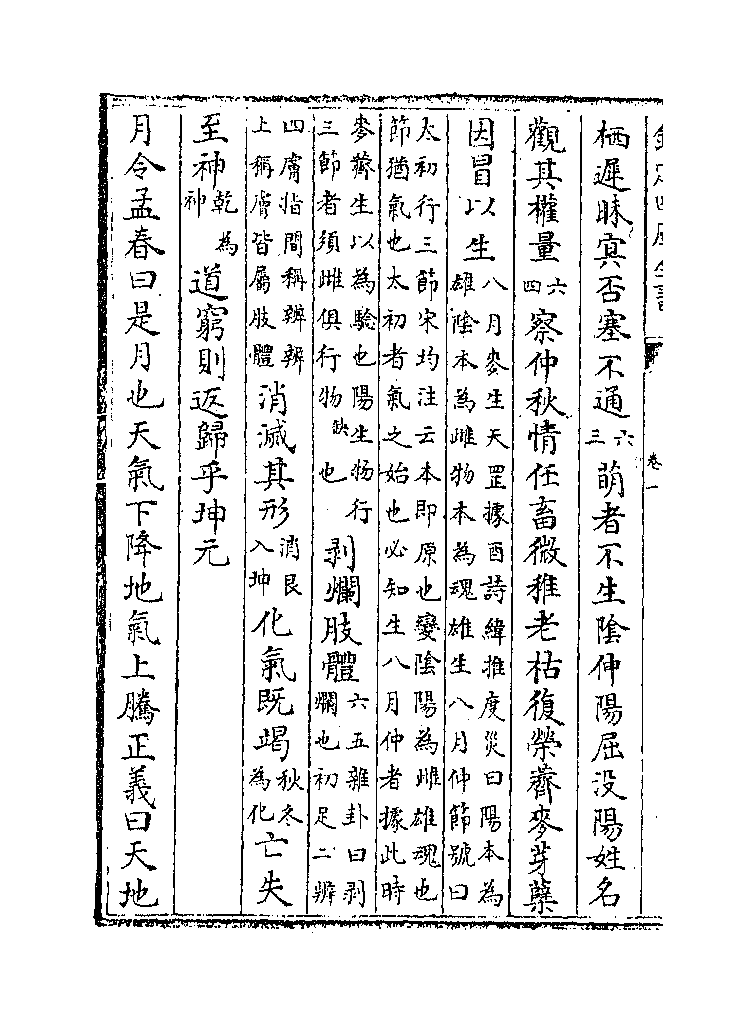 卷一
栖遲昧冥否塞不通六三萌者不生陰伸陽屈没陽姓名
觀其權量六四察仲秋情任畜微稚老枯復榮薺麥芽蘖
因冒以生八月麥生天罡據酉詩緯推度災曰陽本為
雄陰本為雌物本為魂雄生八月仲節號曰
太初行三節宋均注云本即原也變陰陽為雌雄魂也
節猶氣也太初者氣之始也必知生八月仲者據此時
麥薺生以為驗也陽生物行
三節者須雌俱行物缺也
剥爛肢體六五雜卦曰剥
爛也初足二辨
四膚指間稱辨辨
上稱膚皆屬肢體
消滅其形消艮入坤化氣既竭秋冬為化亡失
至神乾為神道窮則返歸乎坤元
月令孟春曰是月也天氣下降地氣上騰正義曰天地